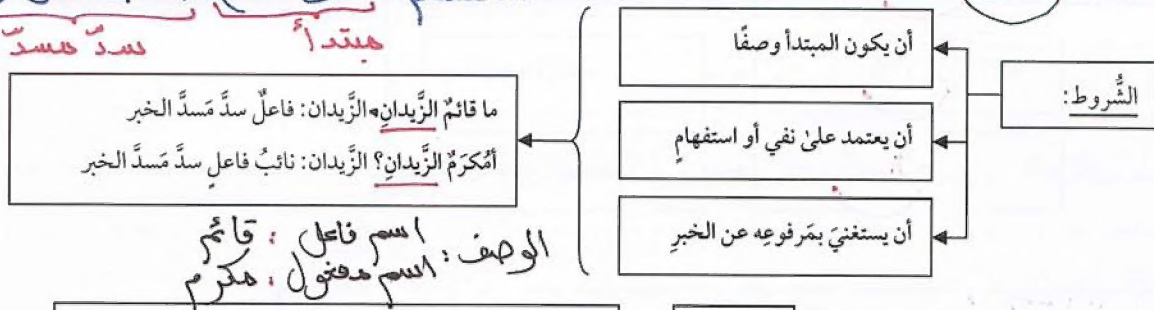 مبتدأ
سدّ مسدّ
الشُّروط:
أن يكون المبتدأ وصفًا
أن يعتمد علىٰ نفي أو استفهامٍ
أن يستغنيَ بمَرفوعِه عن الخبرِ
ما قائمٌ الزَّيدانِ الزَّيدان: فاعلٌ سدَّ مَسدَّ الخبر
أمُكرَمٌ الزَّيدانِ؟ الزَّيدان: نائبُ فاعلٍ سدَّ مَسدَّ الخبر
الوصف: اسم فاعل: قائم
اسم مفعول: مكرم